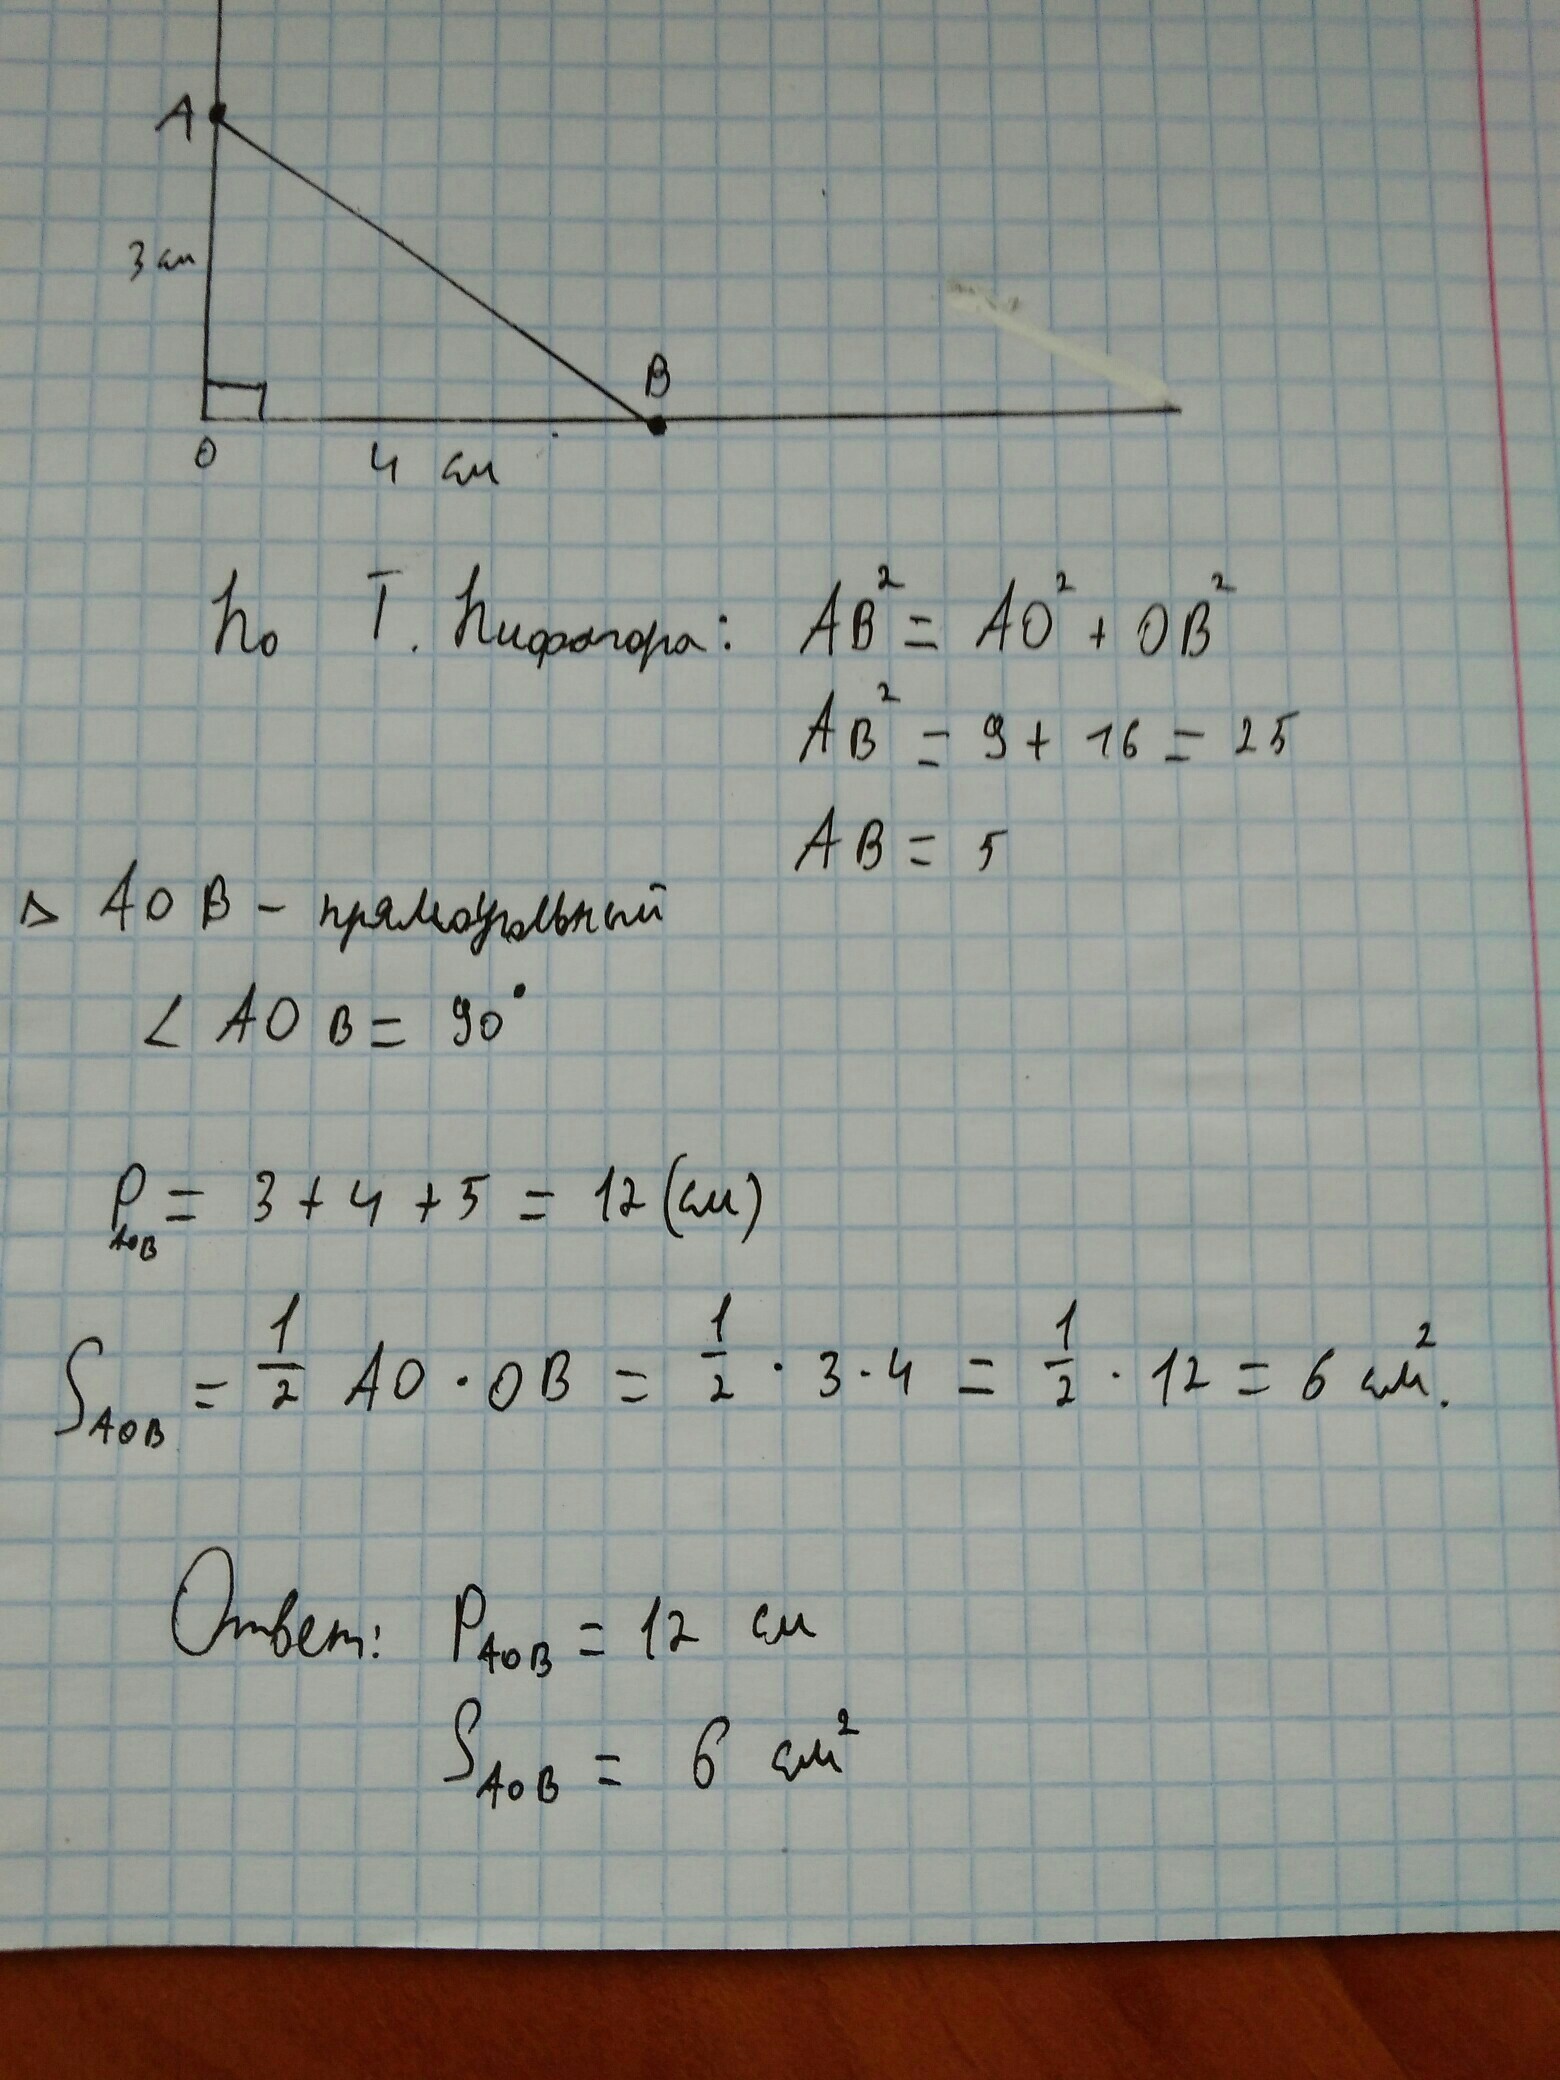 A
3 см
B
O
4 см
По Т. Пифагора: AB² = AO² + OB²
AB² = 9 + 16 = 25
AB = 5
△ AOB - прямоугольный
∠ AOB = 90°
P AOB = 3 + 4 + 5 = 12 (см)
S AOB = 1/2 AO · OB = 1/2 · 3 · 4 = 1/2 · 12 = 6 см².
Ответ: P AOB = 12 см
S AOB = 6 см²